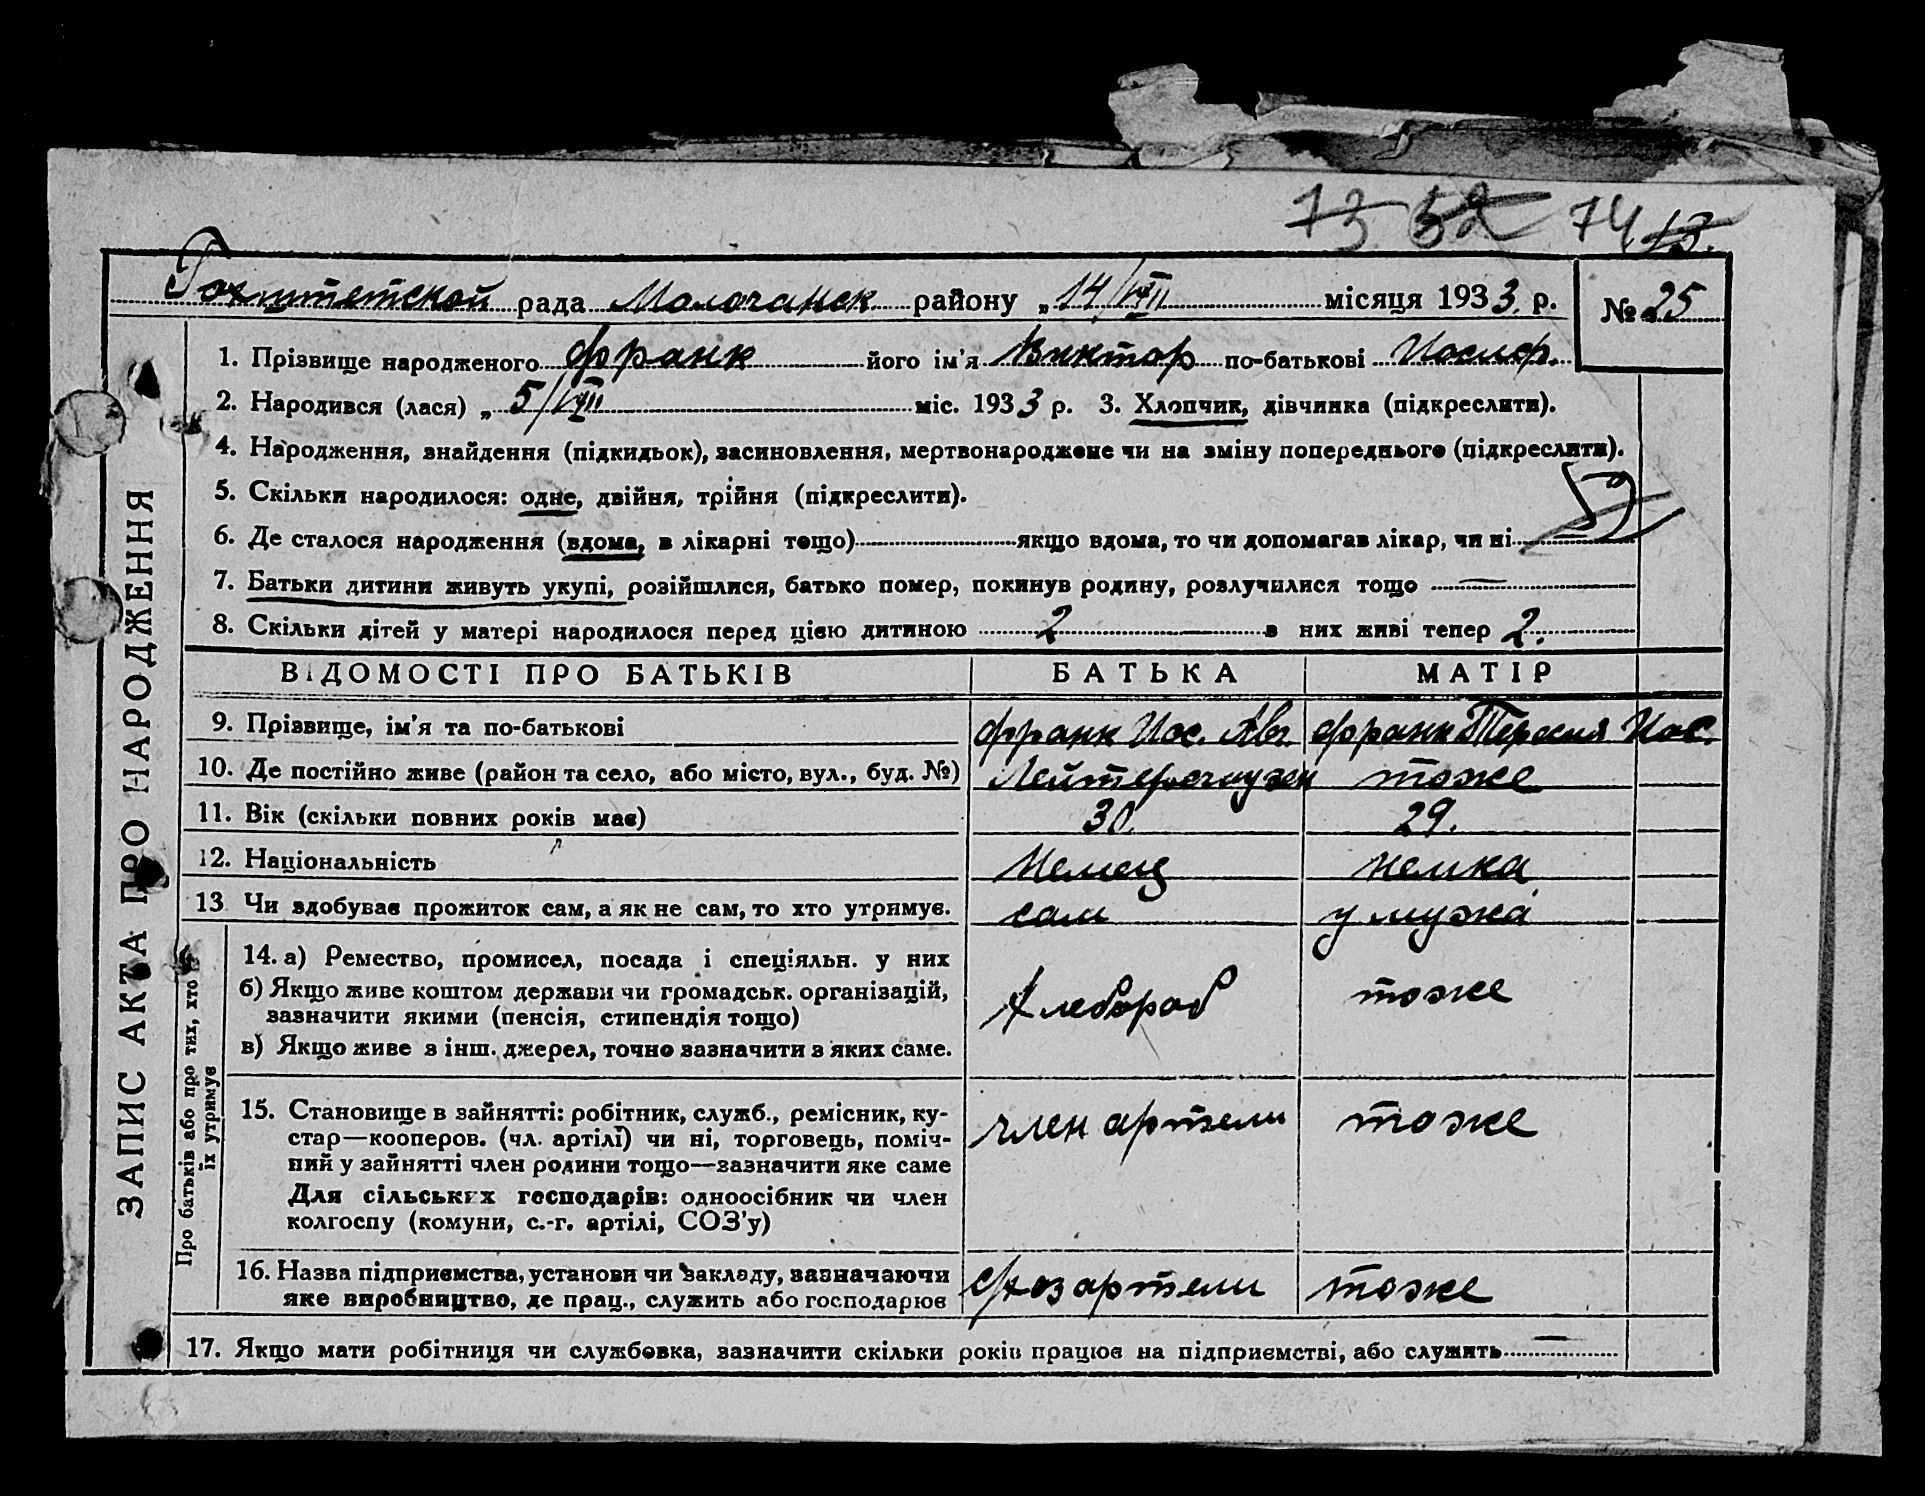 73 52 74 13.
Гохштетской рада Молочанск району „14/VIII місяця 1933. р. № 25
1. Прізвище народженого Франк його ім'я Виктор по-батькові Иосиф.
2. Народився (лася) „5/VIII міс. 1933 р. 3. Хлопчик, дівчинка (підкреслити).
4. Народження, знайдення (підкидьок), засиновлення, мертвонароджене чи на зміну попереднього (підкреслити).
5. Скільки народилося: одне, двійня, трійня (підкреслити).
59
6. Де сталося народження (вдома, в лікарні тощо) якщо вдома, то чи допомагав лікар, чи ні
7. Батьки дитини живуть укупі, розійшлися, батько помер, покинув родину, розлучилися тощо —
8. Скільки дітей у матері народилося перед цією дитиною 2 в них живі тепер 2.
ВІДОМОСТІ ПРО БАТЬКІВ БАТЬКА МАТІР
9. Прізвище, ім'я та по-батькові Франк Иос. Ав. Франк Тересия Иос.
10. Де постійно живе (район та село, або місто, вул., буд. №) Лейтерсгаузен тоже
11. Вік (скільки повних років має) 30. 29.
12. Національність Немец немка
13 Чи здобував прожиток сам, а як не сам, то хто утримує. сам у мужа
14. а) Ремество, промисел, посада і спеціяльн. у них
б) Якщо живе коштом держави чи громадськ. організацій,
зазначити якими (пенсія, стипендія тощо)
Хлебороб тоже
в) Якщо живе з інш. джерел, точно зазначити з яких саме.
15. Становище в зайнятті: робітник, служб., ремісник, ку-
стар—кооперов. (чл. артілі) чи ні, торговець, поміч-
ний у зайнятті член родини тощо—зазначити яке саме
Для сільських господарів: одноосібник чи член
колгоспу (комуни, с.-г. артілі, СОЗ'у)
член артели тоже
16. Назва підприємства, установи чи закладу, зазначаючи
яке виробництво, де прац., служить або господарює
с/хоз артели тоже
17. Якщо мати робітниця чи службовка, зазначити скільки років працює на підприємстві, або служить —
ЗАПИС АКТА ПРО НАРОДЖЕННЯ
Про батьків або про тих, хто
їх утримує